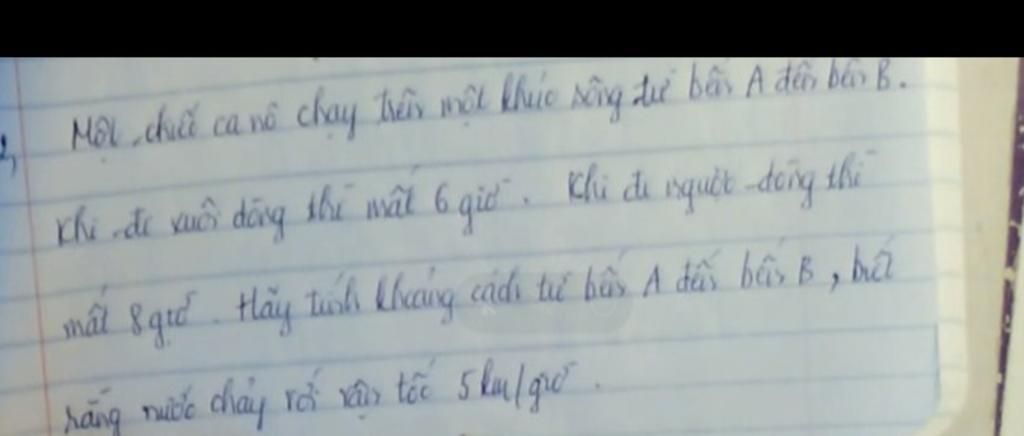 2,
Một chiếc ca nô chạy trên một khúc sông từ bến A đến bến B.
Khi đi xuôi dòng thì mất 6 giờ. Khi đi ngược dòng thì
mất 8 giờ. Hãy tính khoảng cách từ bến A đến bến B, biết
rằng nước chảy với vận tốc 5 km/giờ.